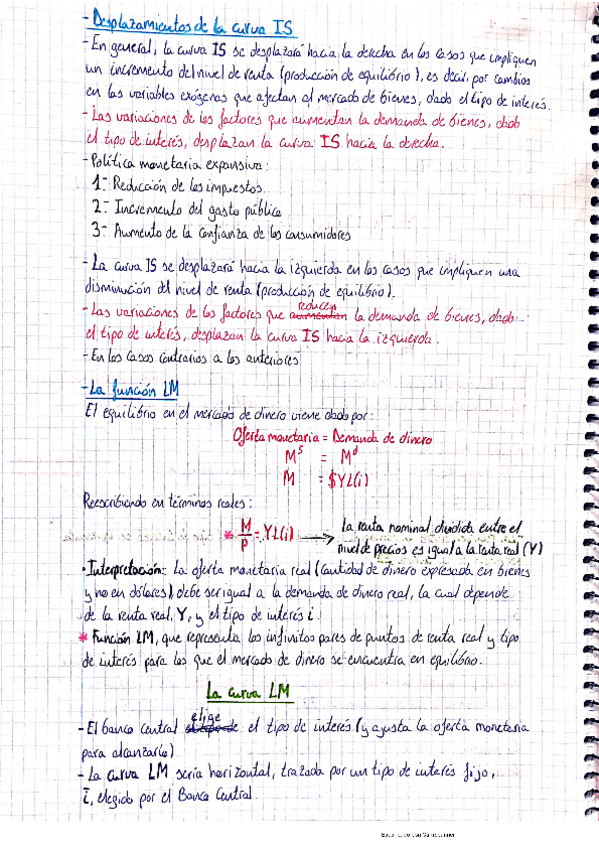 - Desplazamientos de la curva IS
- En general, la curva IS se desplazará hacia la derecha en los casos que impliquen
un incremento del nivel de renta (producción de equilibrio), es decir, por cambios
en las variables exógenas que afectan al mercado de bienes, dado el tipo de interés.
- Las variaciones de los factores que aumentan la demanda de bienes, dado
el tipo de interés, desplazan la curva IS hacia la derecha.
- Política monetaria expansiva:
1.- Reducción de los impuestos
2.- Incremento del gasto público
3.- Aumento de la confianza de los consumidores
- La curva IS se desplazará hacia la izquierda en los casos que impliquen una
disminución del nivel de renta (producción de equilibrio).
- Las variaciones de los factores que aumentan reducen la demanda de bienes, dado
el tipo de interés, desplazan la curva IS hacia la izquierda.
- En los casos contrarios a los anteriores
- La función LM
El equilibrio en el mercado de dinero viene dado por:
Oferta monetaria = Demanda de dinero
M^s = M^d
M = $YL(i)
Reescribiendo en términos reales:
* M/P = YL(i) → La renta nominal dividida entre el
nivel de precios es igual a la renta real (Y)
• Interpretación: La oferta monetaria real (cantidad de dinero expresada en bienes
y no en dólares) debe ser igual a la demanda de dinero real, la cual depende
de la renta real, Y, y el tipo de interés i.
* Función LM, que representa los infinitos pares de puntos de renta real y tipo
de interés para los que el mercado de dinero se encuentra en equilibrio.
La curva LM
- El banco central elige el tipo de interés (y ajusta la oferta monetaria
para alcanzarlo)
- La curva LM sería horizontal, trazada por un tipo de interés fijo,
ī, elegido por el Banco Central.